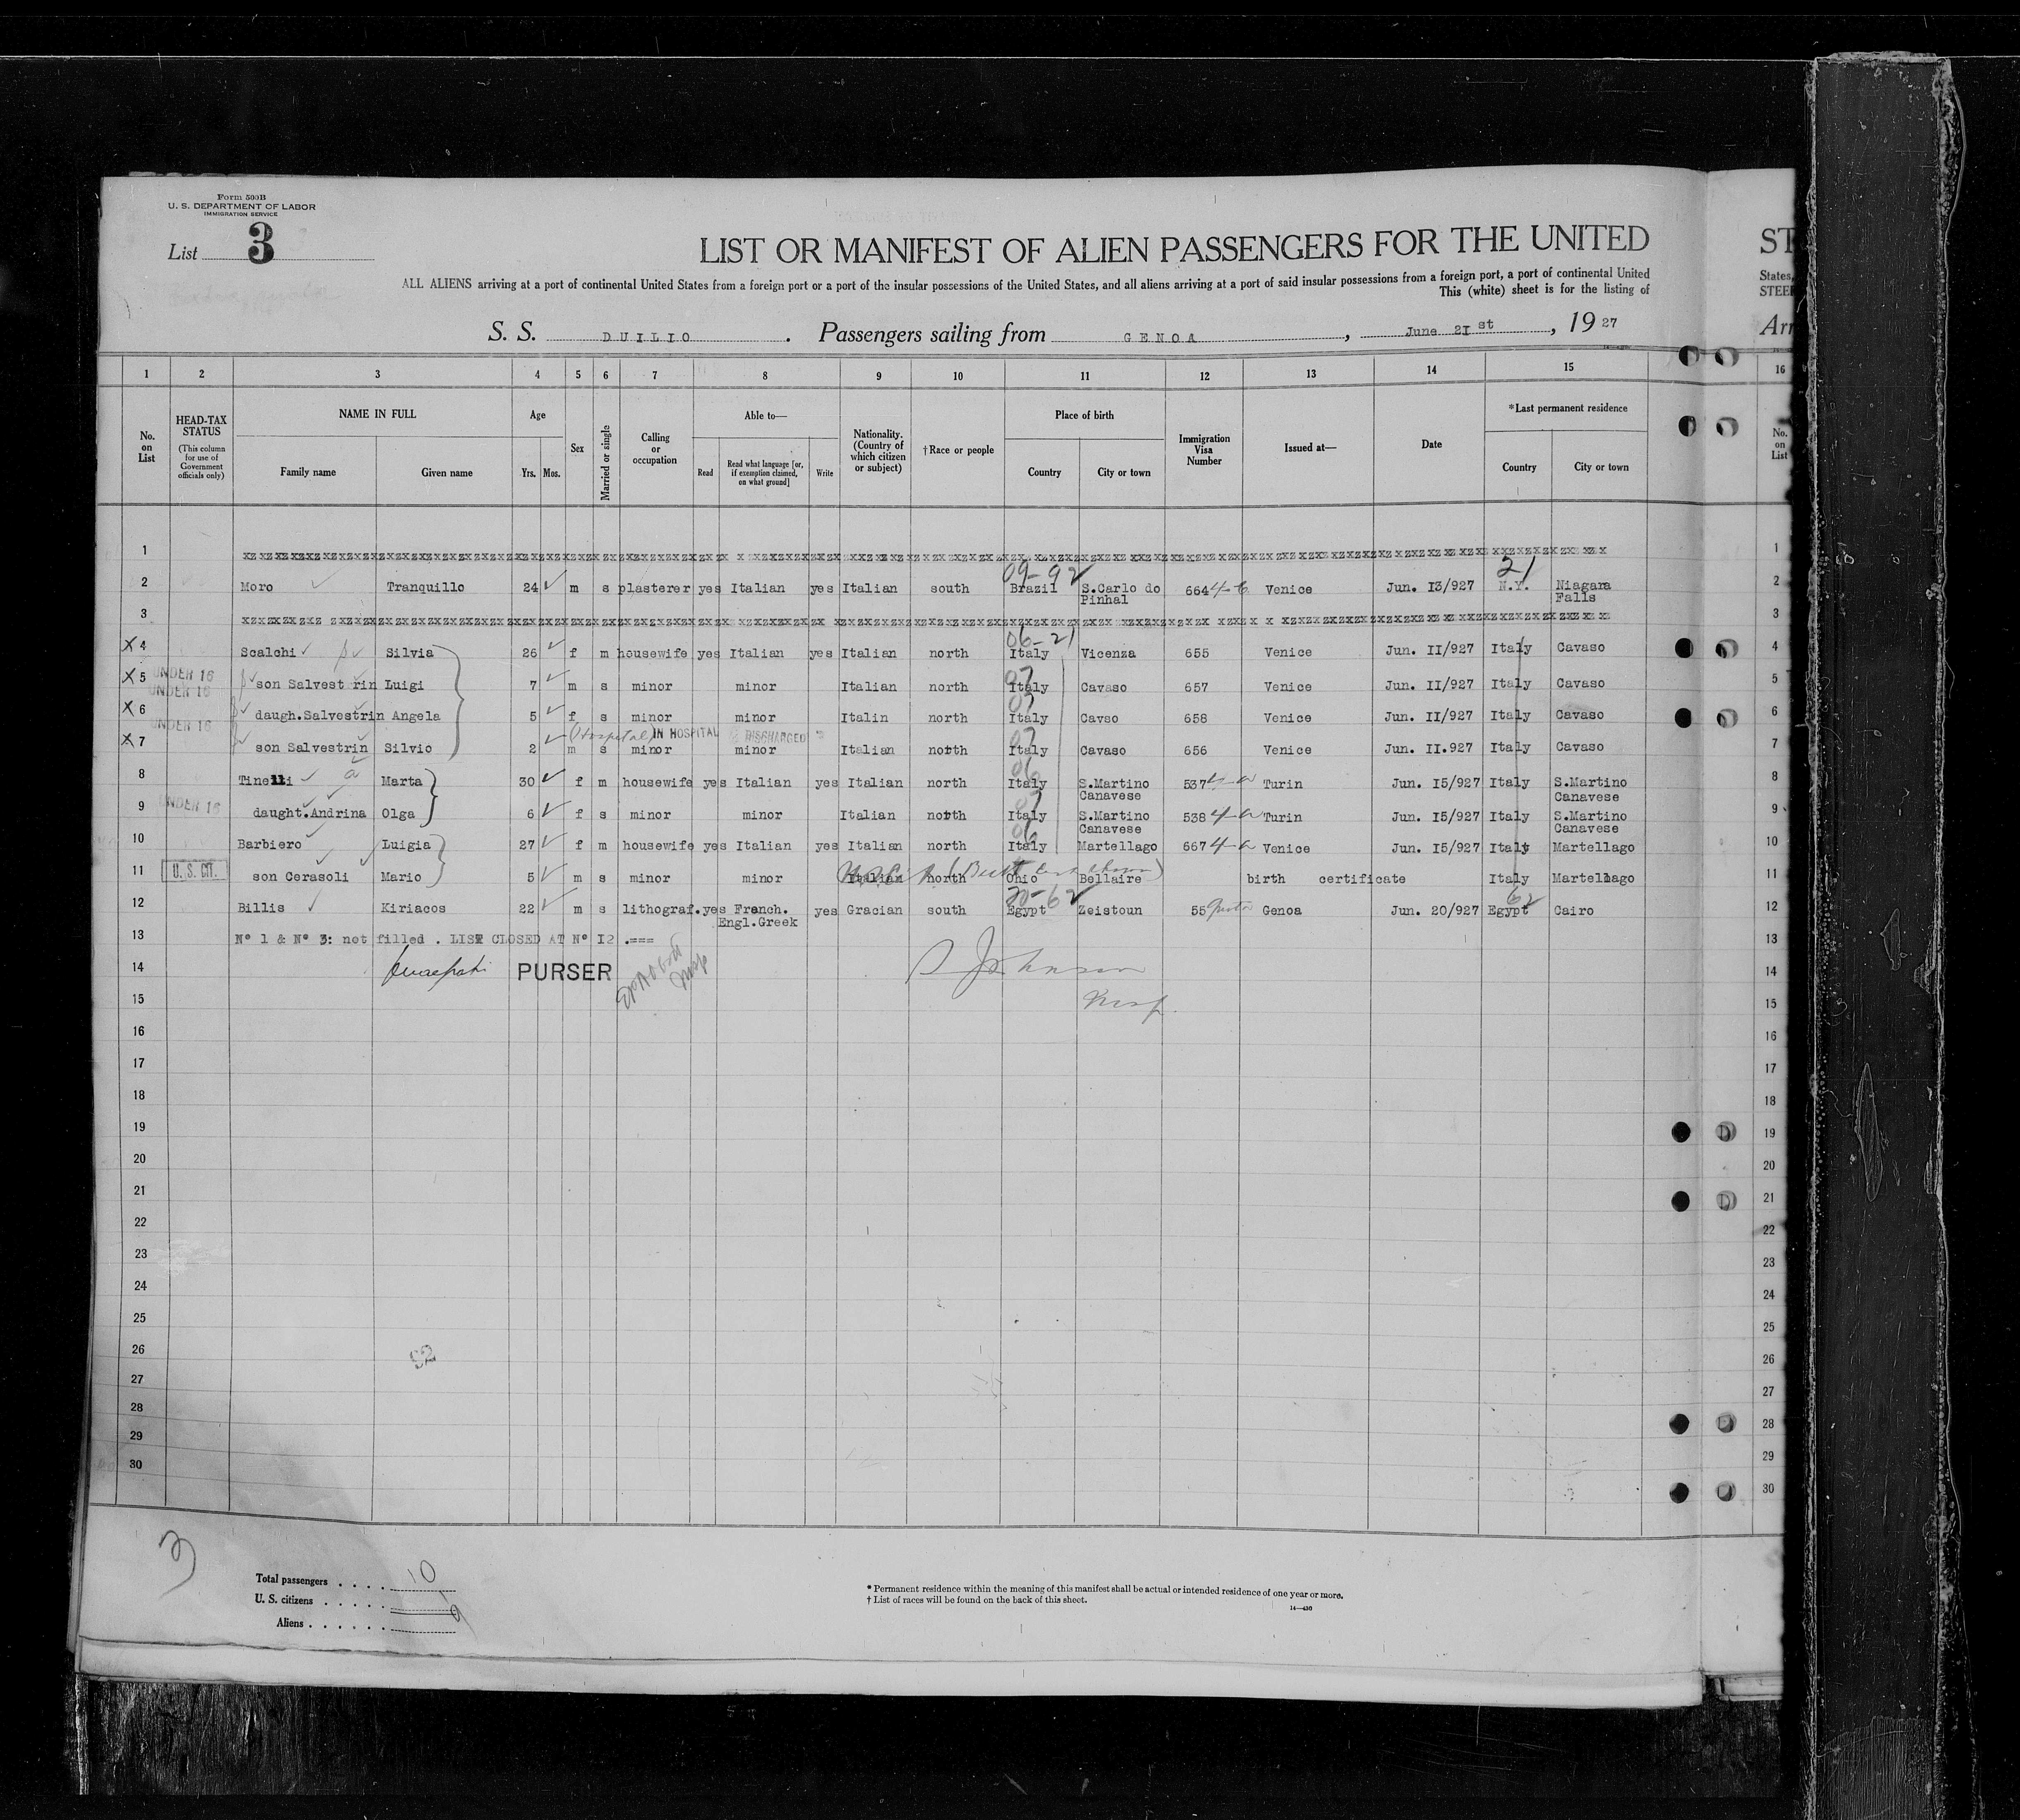 Form 500B
U. S. DEPARTMENT OF LABOR
IMMIGRATION SERVICE
List 3
LIST OR MANIFEST OF ALIEN PASSENGERS FOR THE UNITED
ST
ALL ALIENS arriving at a port of continental United States from a foreign port or a port of the insular possessions of the United States, and all aliens arriving at a port of said insular possessions from a foreign port, a port of continental United
States,
This (white) sheet is for the listing of
STEE
S. S. DUILIO. Passengers sailing from GENOA, June 2I st, 1927
Arr
1 2 3 4 5 6 7 8 9 10 11 12 13 14 15 16
No. on List
HEAD-TAX STATUS (This column for use of Government officials only)
NAME IN FULL Family name Given name
Age Yrs. Mos.
Sex
Married or single
Calling or occupation
Able to— Read Read what language [or, if exemption claimed, on what ground] Write
Nationality. (Country of which citizen or subject)
†Race or people
Place of birth Country City or town
Immigration Visa Number
Issued at—
Date
*Last permanent residence Country City or town
No. on List
1 1
09-92 21
2 Moro Tranquillo 24 m s plasterer yes Italian yes Italian south Brazil S.Carlo do Pinhal 664 4-6 Venice Jun. I3/927 N.Y. Niagara Falls 2
3 3
06-21
X 4 Scalchi Silvia 26 f m housewife yes Italian yes Italian north Italy Vicenza 655 Venice Jun. II/927 Italy Cavaso 4
X 5 UNDER 16 son Salvestrin Luigi 7 m s minor minor Italian north 07 Italy Cavaso 657 Venice Jun. II/927 Italy Cavaso 5
X 6 UNDER 16 daugh.Salvestrin Angela 5 f s minor minor Italin north 07 Italy Cavso 658 Venice Jun. II/927 Italy Cavaso 6
UNDER 16 (Hospital) IN HOSPITAL DISCHARGED
X 7 son Salvestrin Silvio 2 m s minor minor Italian north 07 Italy Cavaso 656 Venice Jun. II.927 Italy Cavaso 7
8 Tinelli Marta 30 f m housewife yes Italian yes Italian north 06 Italy S.Martino Canavese 537 4-a Turin Jun. I5/927 Italy S.Martino Canavese 8
9 UNDER 16 daught.Andrina Olga 6 f s minor minor Italian north 07 Italy S.Martino Canavese 538 4-a Turin Jun. I5/927 Italy S.Martino Canavese 9
10 Barbiero Luigia 27 f m housewife yes Italian yes Italian north 06 Italy Martellago 667 4-a Venice Jun. I5/927 Italy Martellago 10
11 U. S. CIT. son Cerasoli Mario 5 m s minor minor Italian north Ohio Bellaire birth certificate Italy Martellago 11
12 Billis Kiriacos 22 m s lithograf. yes French. Engl.Greek yes Gracian south Egypt Zeistoun 55 Quota Genoa Jun. 20/927 Egypt Cairo 12
13 N° 1 & N° 3: not filled . LIST CLOSED AT N° I2 .=== 13
14 PURSER Johnson 14
15 Insp. 15
16 16
17 17
18 18
19 19
20 20
21 21
22 22
23 23
24 24
25 25
26 92 26
27 27
28 28
29 29
30 30
3
Total passengers 10
U. S. citizens
Aliens 9
* Permanent residence within the meaning of this manifest shall be actual or intended residence of one year or more.
† List of races will be found on the back of this sheet.
14—430